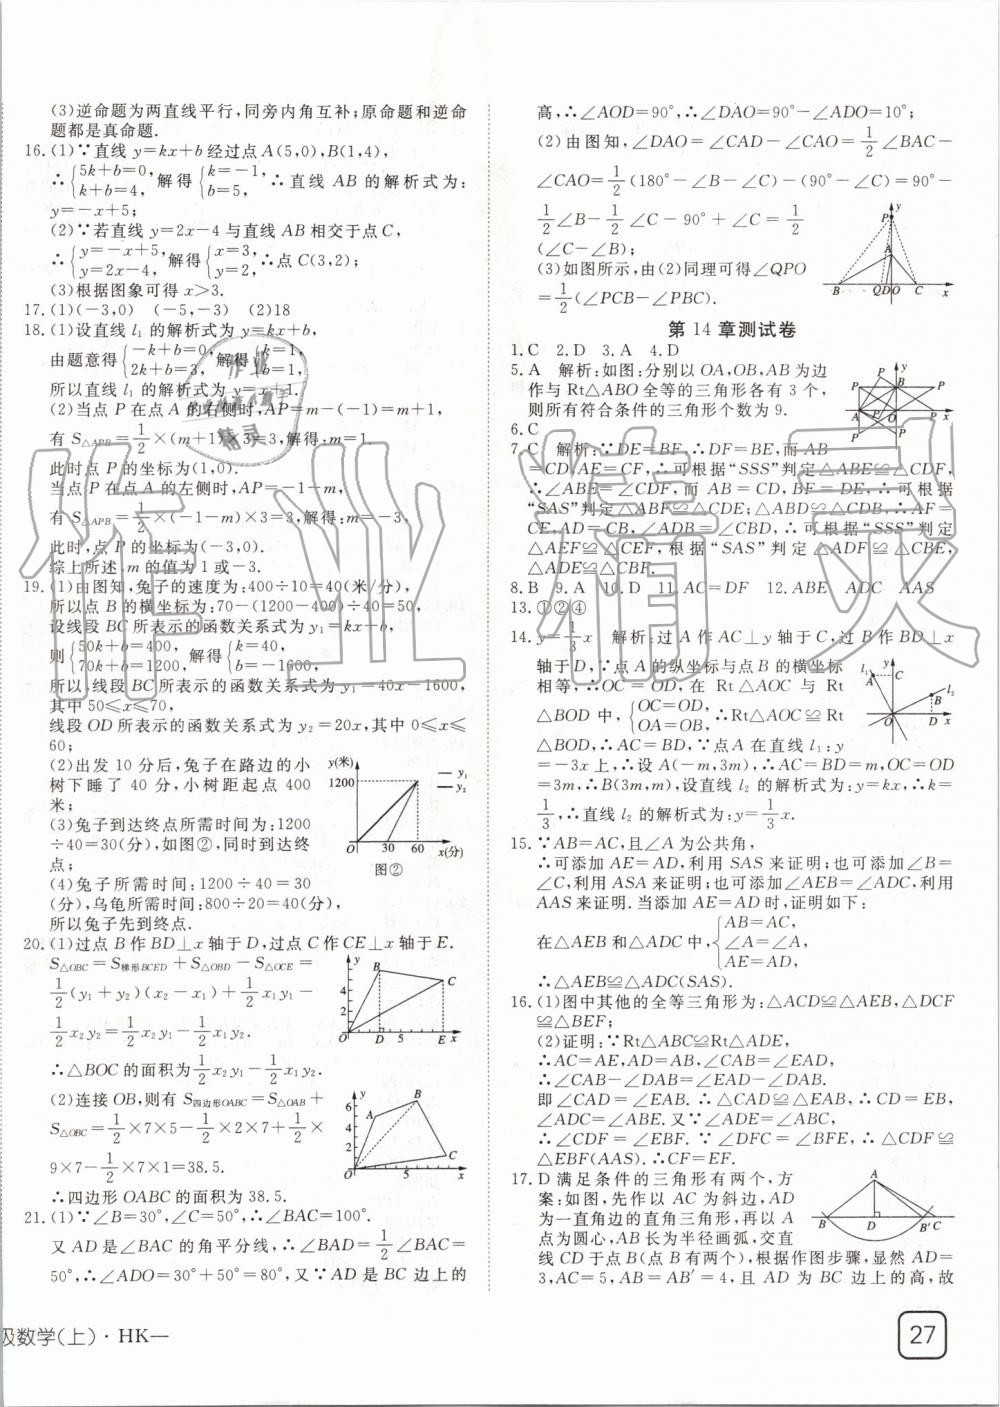 (3)逆命题为两直线平行,同旁内角互补;原命题和逆命
题都是真命题.
16.(1)∵直线 y=kx+b 经过点 A(5,0),B(1,4),
∴{5k+b=0, k+b=4, 解得{k=-1, b=5, ∴直线 AB 的解析式为:
y=-x+5;
(2)∵若直线 y=2x-4 与直线 AB 相交于点 C,
∴{y=-x+5, y=2x-4, 解得{x=3, y=2, ∴点 C(3,2);
(3)根据图象可得 x>3.
17.(1)(-3,0) (2)18
18.(1)设直线 l₁ 的解析式为 y=kx+b,
由题意得{-k+b=0, 2k+b=3, 解得{k=1, b=1.
所以直线 l₁ 的解析式为 y=x+1.
(2)当点 P 在点 A 的右侧时,AP=m-(-1)=m+1,
有 S△APB=1/2×(m+1)×3=3,解得:m=1.
此时点 P 的坐标为(1,0).
当点 P 在点 A 的左侧时,AP=-1-m,
有 S△APB=1/2×(-1-m)×3=3,解得:m=-3,
此时,点 P 的坐标为(-3,0).
综上所述,m 的值为 1 或-3.
19.(1)由图知,兔子的速度为:400÷10=40(米/分),
所以点 B 的横坐标为:70-(1200-400)÷40=50,
设线段 BC 所表示的函数关系式为 y₁=kx+b,
则{50k+b=400, 70k+b=1200, 解得{k=40, b=-1600.
所以,线段 BC 所表示的函数关系式为 y₁=40x-1600,
其中 50≤x≤70,
线段 OD 所表示的函数关系式为 y₂=20x,其中 0≤x≤
60;
(2)出发 10 分后,兔子在路边的小
树下睡了 40 分,小树距起点 400
米;
(3)兔子到达终点所需时间为:1200
÷40=30(分),如图②,同时到达终
点;
(4)兔子所需时间:1200÷40=30
(分),乌龟所需时间:800÷20=40(分),
所以兔子先到终点.
y(米)
1200
y₁
y₂
O 30 60 x(分)
图②
20.(1)过点 B 作 BD⊥x 轴于 D,过点 C 作 CE⊥x 轴于 E.
S△OBC=S梯形BCED+S△OBD-S△OCE=
1/2(y₁+y₂)(x₂-x₁)+1/2x₁y₁-
1/2x₂y₂=1/2x₂y₁-1/2x₁y₂.
∴△BOC 的面积为1/2x₂y₁-1/2x₁y₂.
y
6
4
2
B
C
O D 5 E x
(2)连接 OB,则有 S四边形OABC=S△OAB+
S△OBC=1/2×7×5-1/2×2×7+1/2×
9×7-1/2×7×1=38.5.
∴四边形 OABC 的面积为 38.5.
y
6
4
2
A
B
C
O 5 x
21.(1)∵∠B=30°,∠C=50°,∴∠BAC=100°.
又 AD 是∠BAC 的角平分线,∴∠BAD=1/2∠BAC=
50°,∴∠ADO=30°+50°=80°,又∵AD 是 BC 边上的
高,∴∠AOD=90°,∴∠DAO=90°-∠ADO=10°;
(2)由图知,∠DAO=∠CAD-∠CAO=1/2∠BAC-
∠CAO=1/2(180°-∠B-∠C)-(90°-∠C)=90°-
1/2∠B-1/2∠C-90°+∠C=1/2
(∠C-∠B);
(3)如图所示,由(2)同理可得∠QPO
=1/2(∠PCB-∠PBC).
y
P
A
B QDO C x
第 14 章测试卷
1.C 2.D 3.A 4.D
5.A 解析:如图:分别以 OA,OB,AB 为边
作与 Rt△ABO 全等的三角形各有 3 个,
则所有符合条件的三角形个数为 9.
6.C
7.C 解析:∵DE=BF,∴DF=BE,而 AB
=CD,AE=CF,∴可根据“SSS”判定△ABE≌△CDF,
∴∠ABE=∠CDF,而 AB=CD,BF=DE,∴可根据
“SAS”判定△ABF≌△CDE,∴AF=
CE,AD=CB,∠ADB=∠CBD,∴可根据“SSS”判定
△AEF≌△CEF,根据“SAS”判定△ADF≌△CBE,
△ADE≌△CBF.
8.B 9.A 10.D 11.AC=DF 12.ABE ADC AAS
13.①②④
14.y=1/3x 解析:过 A 作 AC⊥y 轴于 C,过 B 作 BD⊥x
轴于 D,∵点 A 的纵坐标与点 B 的横坐标
相等,∴OC=OD,在 Rt△AOC 与 Rt
△BOD 中,{OC=OD, OA=OB, ∴Rt△AOC≌Rt
△BOD,∴AC=BD,∵点 A 在直线 l₁:y
=-3x 上,∴设 A(-m,3m),∴AC=BD=m,OC=OD
=3m,∴B(3m,m),设直线 l₂ 的解析式为:y=kx,∴k=
1/3,∴直线 l₂ 的解析式为:y=1/3x.
l₁ y
A C
l₂
B
O D x
15.∵AB=AC,且∠A 为公共角,
∴可添加 AE=AD,利用 SAS 来证明;也可添加∠B=
∠C,利用 ASA 来证明;也可添加∠AEB=∠ADC,利用
AAS 来证明.当添加 AE=AD 时,证明如下:
在△AEB 和△ADC 中,{AB=AC, ∠A=∠A, AE=AD,
∴△AEB≌△ADC(SAS).
16.(1)图中其他的全等三角形为:△ACD≌△AEB,△DCF
≌△BEF;
(2)证明:∵Rt△ABC≌Rt△ADE,
∴AC=AE,AD=AB,∠CAB=∠EAD,
∴∠CAB-∠DAB=∠EAD-∠DAB.
即∠CAD=∠EAB,∴△CAD≌△EAB,∴CD=EB,
∠ADC=∠ABE.又∵∠ADE=∠ABC,
∴∠CDF=∠EBF.又∵∠DFC=∠BFE,∴△CDF≌
△EBF(AAS).∴CF=EF.
17.D 满足条件的三角形有两个,方
案:如图,先作以 AC 为斜边,AD 为
一直角边的直角三角形,再以 A
点为圆心,AB 长为半径画弧,交直
线 CD 于点 B(点 B 有两个),根据作图步骤,显然 AD=
3,AC=5,AB=AB′=4,且 AD 为 BC 边上的高,故
A
B D B′ C
级数学(上)·HK—
27
作业精灵